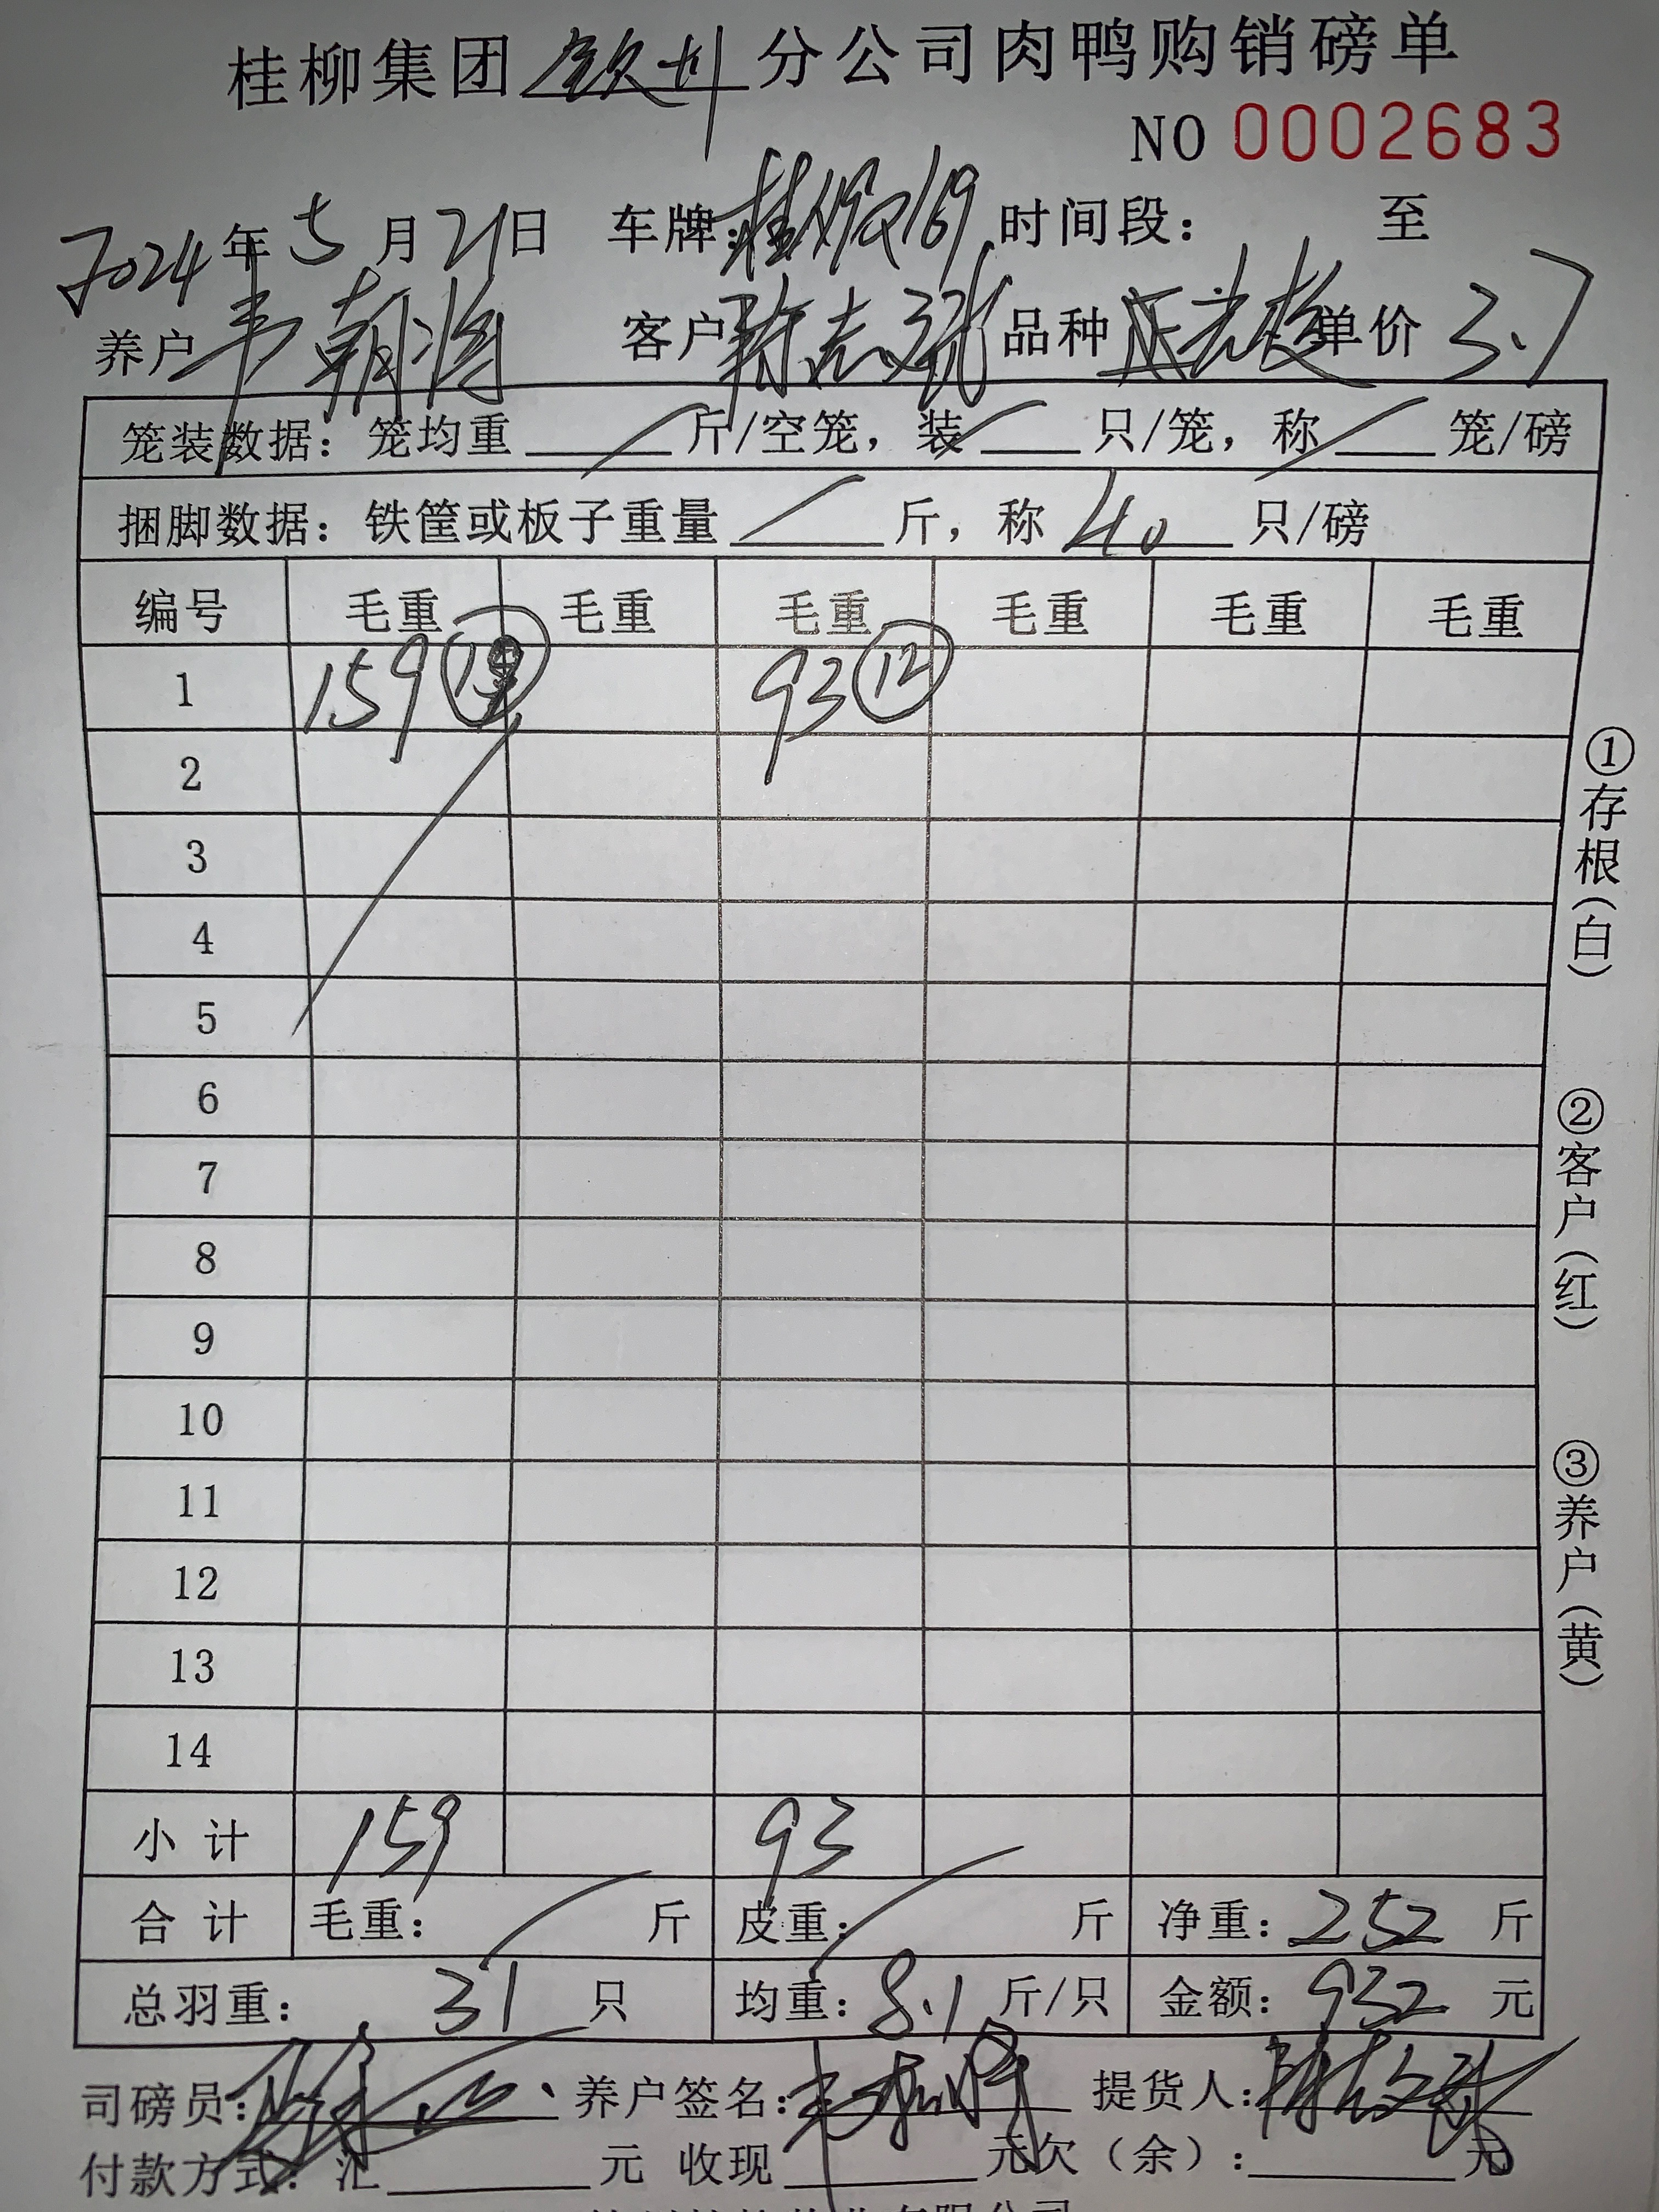 桂柳集团钦州分公司肉鸭购销磅单
NO 0002683
2024年5月21日 车牌: 时间段: 至
养户韦朝 客户陈志强 品种 单价 3.7
笼装数据: 笼均重 / 斤/空笼, 装 / 只/笼, 称 / 笼/磅
捆脚数据: 铁筐或板子重量 / 斤, 称 40 只/磅
编号 毛重 毛重 毛重 毛重 毛重 毛重
1 159 93 ⑫
2
3
4
5
6
7
8
9
10
11
12
13
14
小计 159 93
合计 毛重: / 斤 皮重: / 斤 净重: 252 斤
总羽重: 31 只 均重: 8.1 斤/只 金额: 932 元
司磅员: 养户签名: 提货人:
付款方式: 汇 元 收现 元 欠(余): 元
①存根(白)
②客户(红)
③养户(黄)